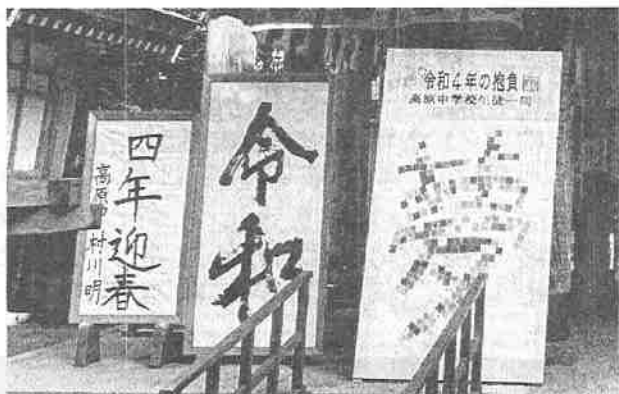 令和
四年迎春
高原中 村川明
令和4年の抱負
高原中学校生徒一同
夢